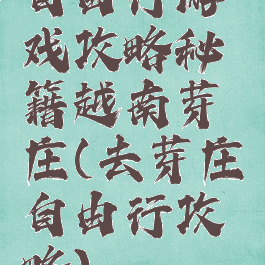 自由行游
戏攻略秘
籍越南芽
庄(去芽庄
自由行攻
略)